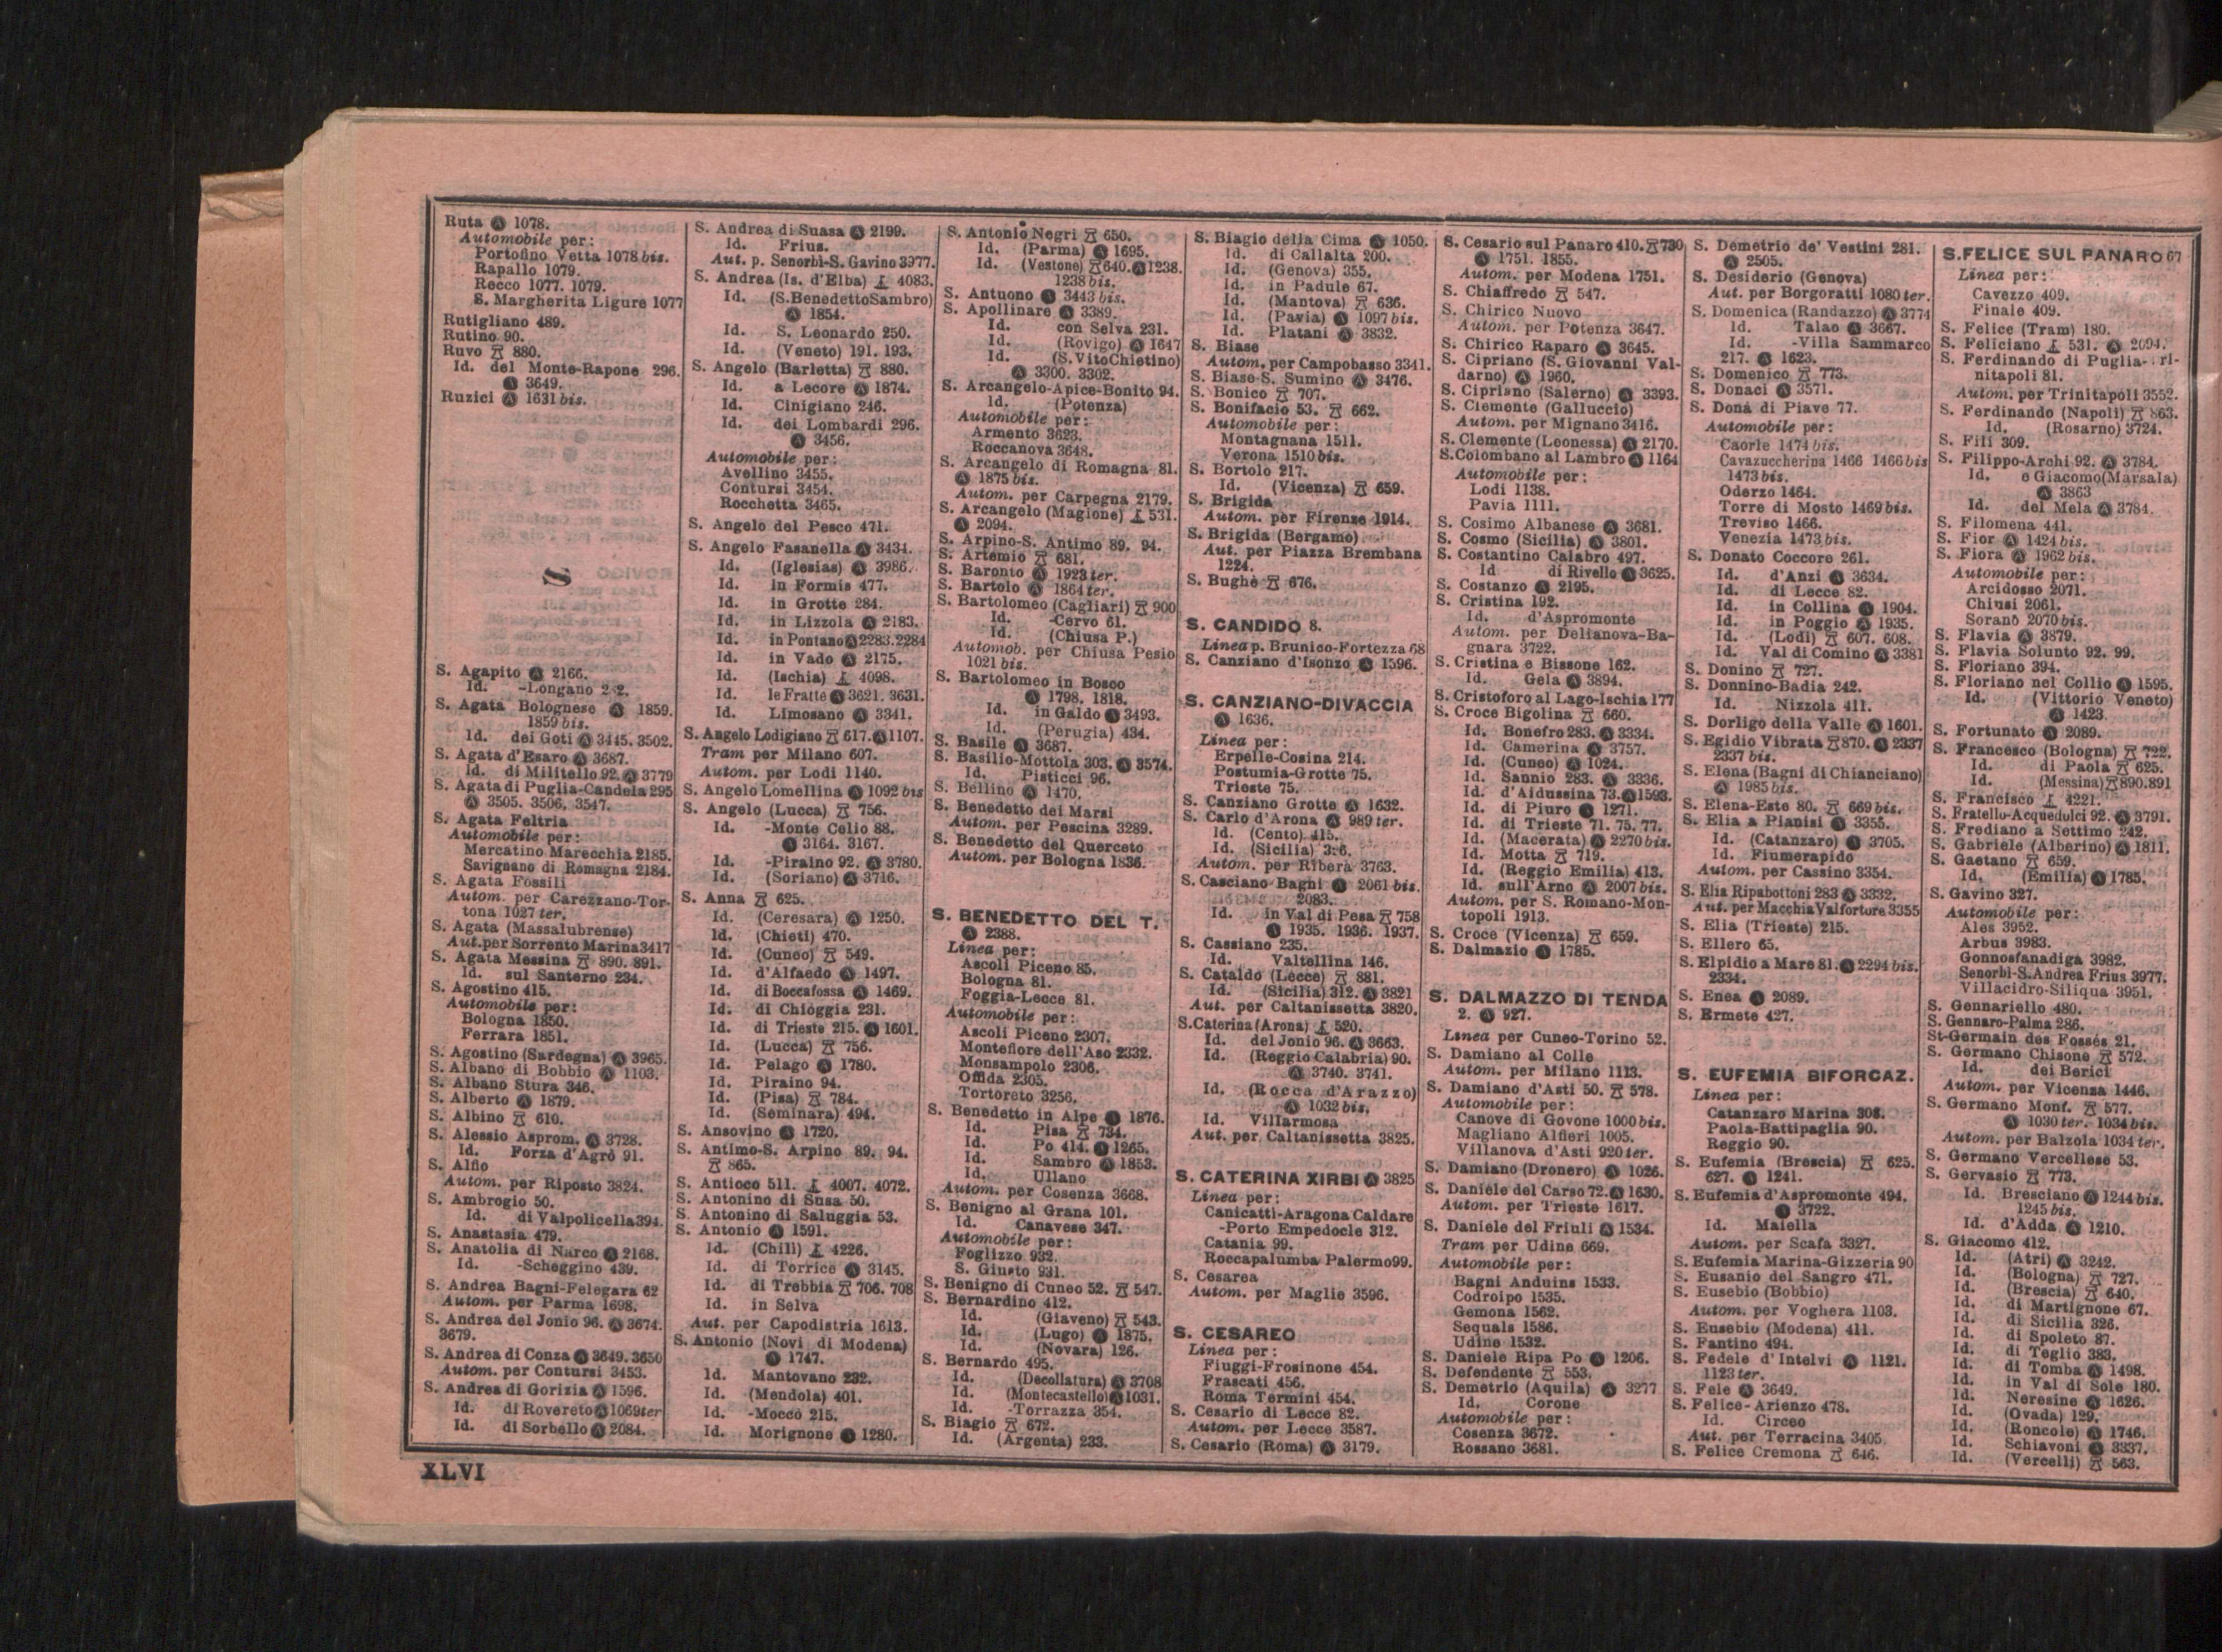 Ruta Ⓐ 1078.
Automobile per:
Portofino Vetta 1078 bis.
Rapallo 1079.
Recco 1077. 1079.
S. Margherita Ligure 1077
Rutigliano 489.
Rutino 90.
Ruvo 880.
Id. del Monte-Rapone 296.
Ⓐ 3649.
Ruzici Ⓐ 1631 bis.
S
S. Agapito Ⓐ 2166.
Id. -Longano
S. Agata Bolognese Ⓐ 1859.
1859 bis.
Id. dei Goti Ⓐ 3445. 3502.
S. Agata d'Esaro Ⓐ 3687.
Id. di Militello 92. Ⓐ 3779
S. Agata di Puglia-Candela 295
Ⓐ 3505. 3506. 3547.
S. Agata Feltria
Automobile per:
Mercatino Marecchia 2185.
Savignano di Romagna 2184.
S. Agata Fossili
Autom. per Carezzano-Tor-
tona 1027 ter.
S. Agata (Massalubrense)
Aut. per Sorrento Marina 3417
S. Agata Messina 890. 891.
Id. sul Santerno 234.
S. Agostino 415.
Automobile per:
Bologna 1850.
Ferrara 1851.
S. Agostino (Sardegna) Ⓐ 3965.
S. Albano di Bobbio Ⓐ 1103.
S. Albano Stura 346.
S. Alberto Ⓐ 1879.
S. Albino 610.
S. Alessio Asprom. Ⓐ 3728.
Id. Forza d'Agrò 91.
S. Alfio
Autom. per Riposto 3824.
S. Ambrogio 50.
Id. di Valpolicella 394.
S. Anastasia 479.
S. Anatolia di Narco Ⓐ 2168.
Id. -Scheggino 439.
S. Andrea Bagni-Felegara 62
Autom. per Parma 1698.
S. Andrea del Jonio 96. Ⓐ 3674.
3679.
S. Andrea di Conza Ⓐ 3649. 3650
Autom. per Contursi 3453.
S. Andrea di Gorizia Ⓐ 1596.
Id. di Rovereto Ⓐ 1069 ter
Id. di Sorbello Ⓐ 2084.
S. Andrea di Suasa Ⓐ 2199.
Id. Frius.
Aut. p. Senorbì-S. Gavino 3977.
S. Andrea (Is. d'Elba) 4083.
Id. (S. Benedetto Sambro)
Ⓐ 1854.
Id. S. Leonardo 250.
Id. (Veneto) 191. 193.
S. Angelo (Barletta) 880.
Id. a Lecore Ⓐ 1874.
Id. Cinigiano 246.
Id. dei Lombardi 296.
Ⓐ 3456.
Automobile per:
Avellino 3455.
Contursi 3454.
Rocchetta 3465.
S. Angelo del Pesco 471.
S. Angelo Fasanella Ⓐ 3434.
Id. (Iglesias) Ⓐ 3986.
Id. in Formis 477.
Id. in Grotte 284.
Id. in Lizzola Ⓐ 2183.
Id. in Pontano Ⓐ 2283. 2284
Id. in Vado Ⓐ 2175.
Id. (Ischia) 4098.
Id. le Fratte Ⓐ 3621. 3631.
Id. Limosano Ⓐ 3341.
S. Angelo Lodigiano 617. Ⓐ 1107.
Tram per Milano 607.
Autom. per Lodi 1140.
S. Angelo Lomellina Ⓐ 1092 bis
S. Angelo (Lucca) 756.
Id. -Monte Celio 88.
Ⓐ 3164. 3167.
Id. -Piraino 92. Ⓐ 3780.
Id. (Soriano) Ⓐ 3716.
S. Anna 625.
Id. (Ceresara) Ⓐ 1250.
Id. (Chieti) 470.
Id. (Cuneo) 549.
Id. d'Alfaedo Ⓐ 1497.
Id. di Boccafossa Ⓐ 1469.
Id. di Chioggia 231.
Id. di Trieste 215. Ⓐ 1601.
Id. (Lucca) 756.
Id. Pelago Ⓐ 1780.
Id. Piraino 94.
Id. (Pisa) 784.
Id. (Seminara) 494.
S. Ansovino Ⓐ 1720.
S. Antimo-S. Arpino 89. 94.
865.
S. Antioco 511. 4007. 4072.
S. Antonino di Susa 50.
S. Antonino di Saluggia 53.
S. Antonio Ⓐ 1591.
Id. (Chili) 4226.
Id. di Torrice Ⓐ 3145.
Id. di Trebbia 706. 708
Id. in Selva
Aut. per Capodistria 1613.
S. Antonio (Novi di Modena)
Ⓐ 1747.
Id. Mantovano 232.
Id. (Mendola) 401.
Id. -Moccò 215.
Id. Morignone Ⓐ 1280.
S. Antonio Negri 650.
Id. (Parma) Ⓐ 1695.
Id. (Vestone) 640. Ⓐ 1238.
1238 bis.
S. Antuono Ⓐ 3443 bis.
S. Apollinare Ⓐ 3389.
Id. con Selva 231.
Id. (Rovigo) Ⓐ 1647
Id. (S. Vito Chietino)
Ⓐ 3300. 3302.
S. Arcangelo-Apice-Bonito 94.
Id. (Potenza)
Automobile per:
Armento 3623.
Roccanova 3648.
S. Arcangelo di Romagna 81.
Ⓐ 1875 bis.
Autom. per Carpegna 2179.
S. Arcangelo (Magione) 531.
Ⓐ 2094.
S. Arpino-S. Antimo 89. 94.
S. Artemio 681.
S. Baronto Ⓐ 1923 ter.
S. Bartolo Ⓐ 1864 ter.
S. Bartolomeo (Cagliari) 900
Id. -Cervo 61.
Id. (Chiusa P.)
Automob. per Chiusa Pesio
1021 bis.
S. Bartolomeo in Bosco
Ⓐ 1798. 1818.
Id. in Galdo Ⓐ 3493.
Id. (Perugia) 434.
S. Basile Ⓐ 3687.
S. Basilio-Mottola 303. Ⓐ 3574.
Id. Pisticci 96.
S. Bellino Ⓐ 1470.
S. Benedetto dei Marsi
Autom. per Pescina 3289.
S. Benedetto del Querceto
Autom. per Bologna 1836.
S. BENEDETTO DEL T.
Ⓐ 2388.
Linea per:
Ascoli Piceno 85.
Bologna 81.
Foggia-Lecce 81.
Automobile per:
Ascoli Piceno 2307.
Montefiore dell'Aso 2332.
Monsampolo 2306.
Offida 2305.
Tortoreto 3256.
S. Benedetto in Alpe Ⓐ 1876.
Id. Pisa 734.
Id. Po 414. Ⓐ 1265.
Id. Sambro Ⓐ 1853.
Id. Ullano
Autom. per Cosenza 3668.
S. Benigno al Grana 101.
Id. Canavese 347.
Automobile per:
Foglizzo 932.
S. Giusto 931.
S. Benigno di Cuneo 52. 547.
S. Bernardino 412.
Id. (Giaveno) 543.
Id. (Lugo) Ⓐ 1875.
Id. (Novara) 126.
S. Bernardo 495.
Id. (Decollatura) Ⓐ 3708
Id. (Montecastello) Ⓐ 1031.
Id. -Torrazza 354.
S. Biagio 672.
Id. (Argenta) 233.
S. Biagio della Cima Ⓐ 1050.
Id. di Callalta 200.
Id. (Genova) 355.
Id. in Padule 67.
Id. (Mantova) 636.
Id. (Pavia) Ⓐ 1097 bis.
Id. Platani Ⓐ 3832.
S. Biase
Autom. per Campobasso 3341.
S. Biase-S. Sumino Ⓐ 3476.
S. Bonico 707.
S. Bonifacio 53. 662.
Automobile per:
Montagnana 1511.
Verona 1510 bis.
S. Bortolo 217.
Id. (Vicenza) 659.
S. Brigida
Autom. per Firenze 1914.
S. Brigida (Bergamo)
Aut. per Piazza Brembana
1224.
S. Bughè 676.
S. CANDIDO 8.
Linea p. Brunico-Fortezza 68
S. Canziano d'Isonzo Ⓐ 1596.
S. CANZIANO-DIVACCIA
Ⓐ 1636.
Linea per:
Erpelle-Cosina 214.
Postumia-Grotte 75.
Trieste 75.
S. Canziano Grotte Ⓐ 1632.
S. Carlo d'Arona Ⓐ 989 ter.
Id. (Cento) 415.
Id. (Sicilia)
Autom. per Ribera 3763.
S. Casciano Bagni Ⓐ 2061 bis.
2083.
Id. in Val di Pesa 758
Ⓐ 1935. 1936. 1937.
S. Cassiano 235.
Id. Valtellina 146.
S. Cataldo (Lecce) 881.
Id. (Sicilia) 312. Ⓐ 3821
Aut. per Caltanissetta 3820.
S. Caterina (Arona) 520.
Id. del Jonio 96. Ⓐ 3663.
Id. (Reggio Calabria) 90.
Ⓐ 3740. 3741.
Id. (Rocca d'Arazzo)
Ⓐ 1032 bis.
Id. Villarmosa
Aut. per Caltanissetta 3825.
S. CATERINA XIRBI Ⓐ 3825
Linea per:
Canicattì-Aragona Caldare
-Porto Empedocle 312.
Catania 99.
Roccapalumba Palermo 99.
S. Cesarea
Autom. per Maglie 3596.
S. CESAREO
Linea per:
Fiuggi-Frosinone 454.
Frascati 456.
Roma Termini 454.
S. Cesario di Lecce 82.
Autom. per Lecce 3587.
S. Cesario (Roma) Ⓐ 3179.
S. Cesario sul Panaro 410. 730
Ⓐ 1751. 1855.
Autom. per Modena 1751.
S. Chiaffredo 547.
S. Chirico Nuovo
Autom. per Potenza 3647.
S. Chirico Raparo Ⓐ 3645.
S. Cipriano (S. Giovanni Val-
darno) Ⓐ 1960.
S. Cipriano (Salerno) Ⓐ 3393.
S. Clemente (Galluccio)
Autom. per Mignano 3416.
S. Clemente (Leonessa) Ⓐ 2170.
S. Colombano al Lambro Ⓐ 1164
Automobile per:
Lodi 1138.
Pavia 1111.
S. Cosimo Albanese Ⓐ 3681.
S. Cosmo (Sicilia) Ⓐ 3801.
S. Costantino Calabro 497.
Id. di Rivello Ⓐ 3625.
S. Costanzo Ⓐ 2195.
S. Cristina 192.
Id. d'Aspromonte
Autom. per Delianova-Ba-
gnara 3722.
S. Cristina e Bissone 162.
Id. Gela Ⓐ 3894.
S. Cristoforo al Lago-Ischia 177
S. Croce Bigolina 660.
Id. Bonefro 283. Ⓐ 3334.
Id. Camerina Ⓐ 3757.
Id. (Cuneo) Ⓐ 1024.
Id. Sannio 283. Ⓐ 3336.
Id. d'Aidussina 73. Ⓐ 1593.
Id. di Piuro Ⓐ 1271.
Id. di Trieste 71. 75. 77.
Id. (Macerata) Ⓐ 2270 bis.
Id. Motta 719.
Id. (Reggio Emilia) 413.
Id. sull'Arno Ⓐ 2007 bis.
Autom. per S. Romano-Mon-
topoli 1913.
S. Croce (Vicenza) 659.
S. Dalmazio Ⓐ 1785.
S. DALMAZZO DI TENDA
2. Ⓐ 927.
Linea per Cuneo-Torino 52.
S. Damiano al Colle
Autom. per Milano 1113.
S. Damiano d'Asti 50. 578.
Automobile per:
Canove di Govone 1000 bis.
Magliano Alfieri 1005.
Villanova d'Asti 920 ter.
S. Damiano (Dronero) Ⓐ 1026.
S. Daniele del Carso 72. Ⓐ 1630.
Autom. per Trieste 1617.
S. Daniele del Friuli Ⓐ 1534.
Tram per Udine 669.
Automobile per:
Bagni Anduins 1533.
Codroipo 1535.
Gemona 1562.
Sequals 1586.
Udine 1532.
S. Daniele Ripa Po Ⓐ 1206.
S. Defendente 553.
S. Demetrio (Aquila) Ⓐ 3277
Id. Corone
Automobile per:
Cosenza 3672.
Rossano 3681.
S. Demetrio de' Vestini 281.
Ⓐ 2505.
S. Desiderio (Genova)
Aut. per Borgoratti 1080 ter.
S. Domenica (Randazzo) Ⓐ 3774
Id. Talao Ⓐ 3667.
Id. -Villa Sammarco
217. Ⓐ 1623.
S. Domenico 773.
S. Donaci Ⓐ 3571.
S. Donà di Piave 77.
Automobile per:
Caorle 1474 bis.
Cavazuccherina 1466 1466 bis
1473 bis.
Oderzo 1464.
Torre di Mosto 1469 bis.
Treviso 1466.
Venezia 1473 bis.
S. Donato Coccore 261.
Id. d'Anzi Ⓐ 3634.
Id. di Lecce 82.
Id. in Collina Ⓐ 1904.
Id. in Poggio Ⓐ 1935.
Id. (Lodi) 607. 608.
Id. Val di Comino Ⓐ 3381
S. Donino 727.
S. Donnino-Badia 242.
Id. Nizzola 411.
S. Dorligo della Valle Ⓐ 1601.
S. Egidio Vibrata 870. Ⓐ 2337
2337 bis.
S. Elena (Bagni di Chianciano)
Ⓐ 1985 bis.
S. Elena-Este 80. 669 bis.
S. Elia a Pianisi Ⓐ 3355.
Id. (Catanzaro) Ⓐ 3705.
Id. Fiumerapido
Autom. per Cassino 3354.
S. Elia Ripabottoni 283 Ⓐ 3332.
Aut. per Macchia Valfortore 3355
S. Elia (Trieste) 215.
S. Ellero 65.
S. Elpidio a Mare 81. Ⓐ 2294 bis.
2334.
S. Enea Ⓐ 2089.
S. Ermete 427.
S. EUFEMIA BIFORCAZ.
Linea per:
Catanzaro Marina 308.
Paola-Battipaglia 90.
Reggio 90.
S. Eufemia (Brescia) 625.
627. Ⓐ 1241.
S. Eufemia d'Aspromonte 494.
Ⓐ 3722.
Id. Maiella
Autom. per Scafa 3327.
S. Eufemia Marina-Gizzeria 90
S. Eusanio del Sangro 471.
S. Eusebio (Bobbio)
Autom. per Voghera 1103.
S. Eusebio (Modena) 411.
S. Fantino 494.
S. Fedele d'Intelvi Ⓐ 1121.
1123 ter.
S. Fele Ⓐ 3649.
S. Felice-Arienzo 478.
Id. Circeo
Aut. per Terracina 3405
S. Felice Cremona 646.
S. FELICE SUL PANARO 67
Linea per:
Cavezzo 409.
Finale 409.
S. Felice (Tram) 180.
S. Feliciano 531. Ⓐ 2094.
S. Ferdinando di Puglia-
nitapoli 81.
Autom. per Trinitapoli 3552.
S. Ferdinando (Napoli) 863.
Id. (Rosarno) 3724.
S. Fili 309.
S. Filippo-Archi 92. Ⓐ 3784.
Id. e Giacomo (Marsala)
Ⓐ 3863
Id. del Mela Ⓐ 3784.
S. Filomena 441.
S. Fior Ⓐ 1424 bis.
S. Fiora Ⓐ 1962 bis.
Automobile per:
Arcidosso 2071.
Chiusi 2061.
Sorano 2070 bis.
S. Flavia Ⓐ 3879.
S. Flavia Solunto 92. 99.
S. Floriano 394.
S. Floriano nel Collio Ⓐ 1595.
Id. (Vittorio Veneto)
Ⓐ 1423.
S. Fortunato Ⓐ 2089.
S. Francesco (Bologna) 722.
Id. di Paola 625.
Id. (Messina) 890.891
S. Francisco 4221.
S. Fratello-Acquedolci 92. Ⓐ 3791.
S. Frediano a Settimo 242.
S. Gabriele (Alberino) Ⓐ 1811.
S. Gaetano 659.
Id. (Emilia) Ⓐ 1785.
S. Gavino 327.
Automobile per:
Ales 3952.
Arbus 3983.
Gonnosfanadiga 3982.
Senorbì-S. Andrea Frius 3977.
Villacidro-Siliqua 3951.
S. Gennariello 480.
S. Gennaro-Palma 286.
St-Germain des Fossés 21.
S. Germano Chisone 572.
Id. dei Berici
Autom. per Vicenza 1446.
S. Germano Monf. 577.
Ⓐ 1030 ter. 1034 bis.
Autom. per Balzola 1034 ter.
S. Germano Vercellese 53.
S. Gervasio 773.
Id. Bresciano Ⓐ 1244 bis.
1245 bis.
Id. d'Adda Ⓐ 1210.
S. Giacomo 412.
Id. (Atri) Ⓐ 3242.
Id. (Bologna) 727.
Id. (Brescia) 640.
Id. di Martignone 67.
Id. di Sicilia 326.
Id. di Spoleto 87.
Id. di Teglio 383.
Id. di Tomba Ⓐ 1498.
Id. in Val di Sole 180.
Id. Neresine Ⓐ 1626.
Id. (Ovada) 129.
Id. (Roncole) Ⓐ 1746.
Id. Schiavoni Ⓐ 3337.
Id. (Vercelli) 563.
XLVI